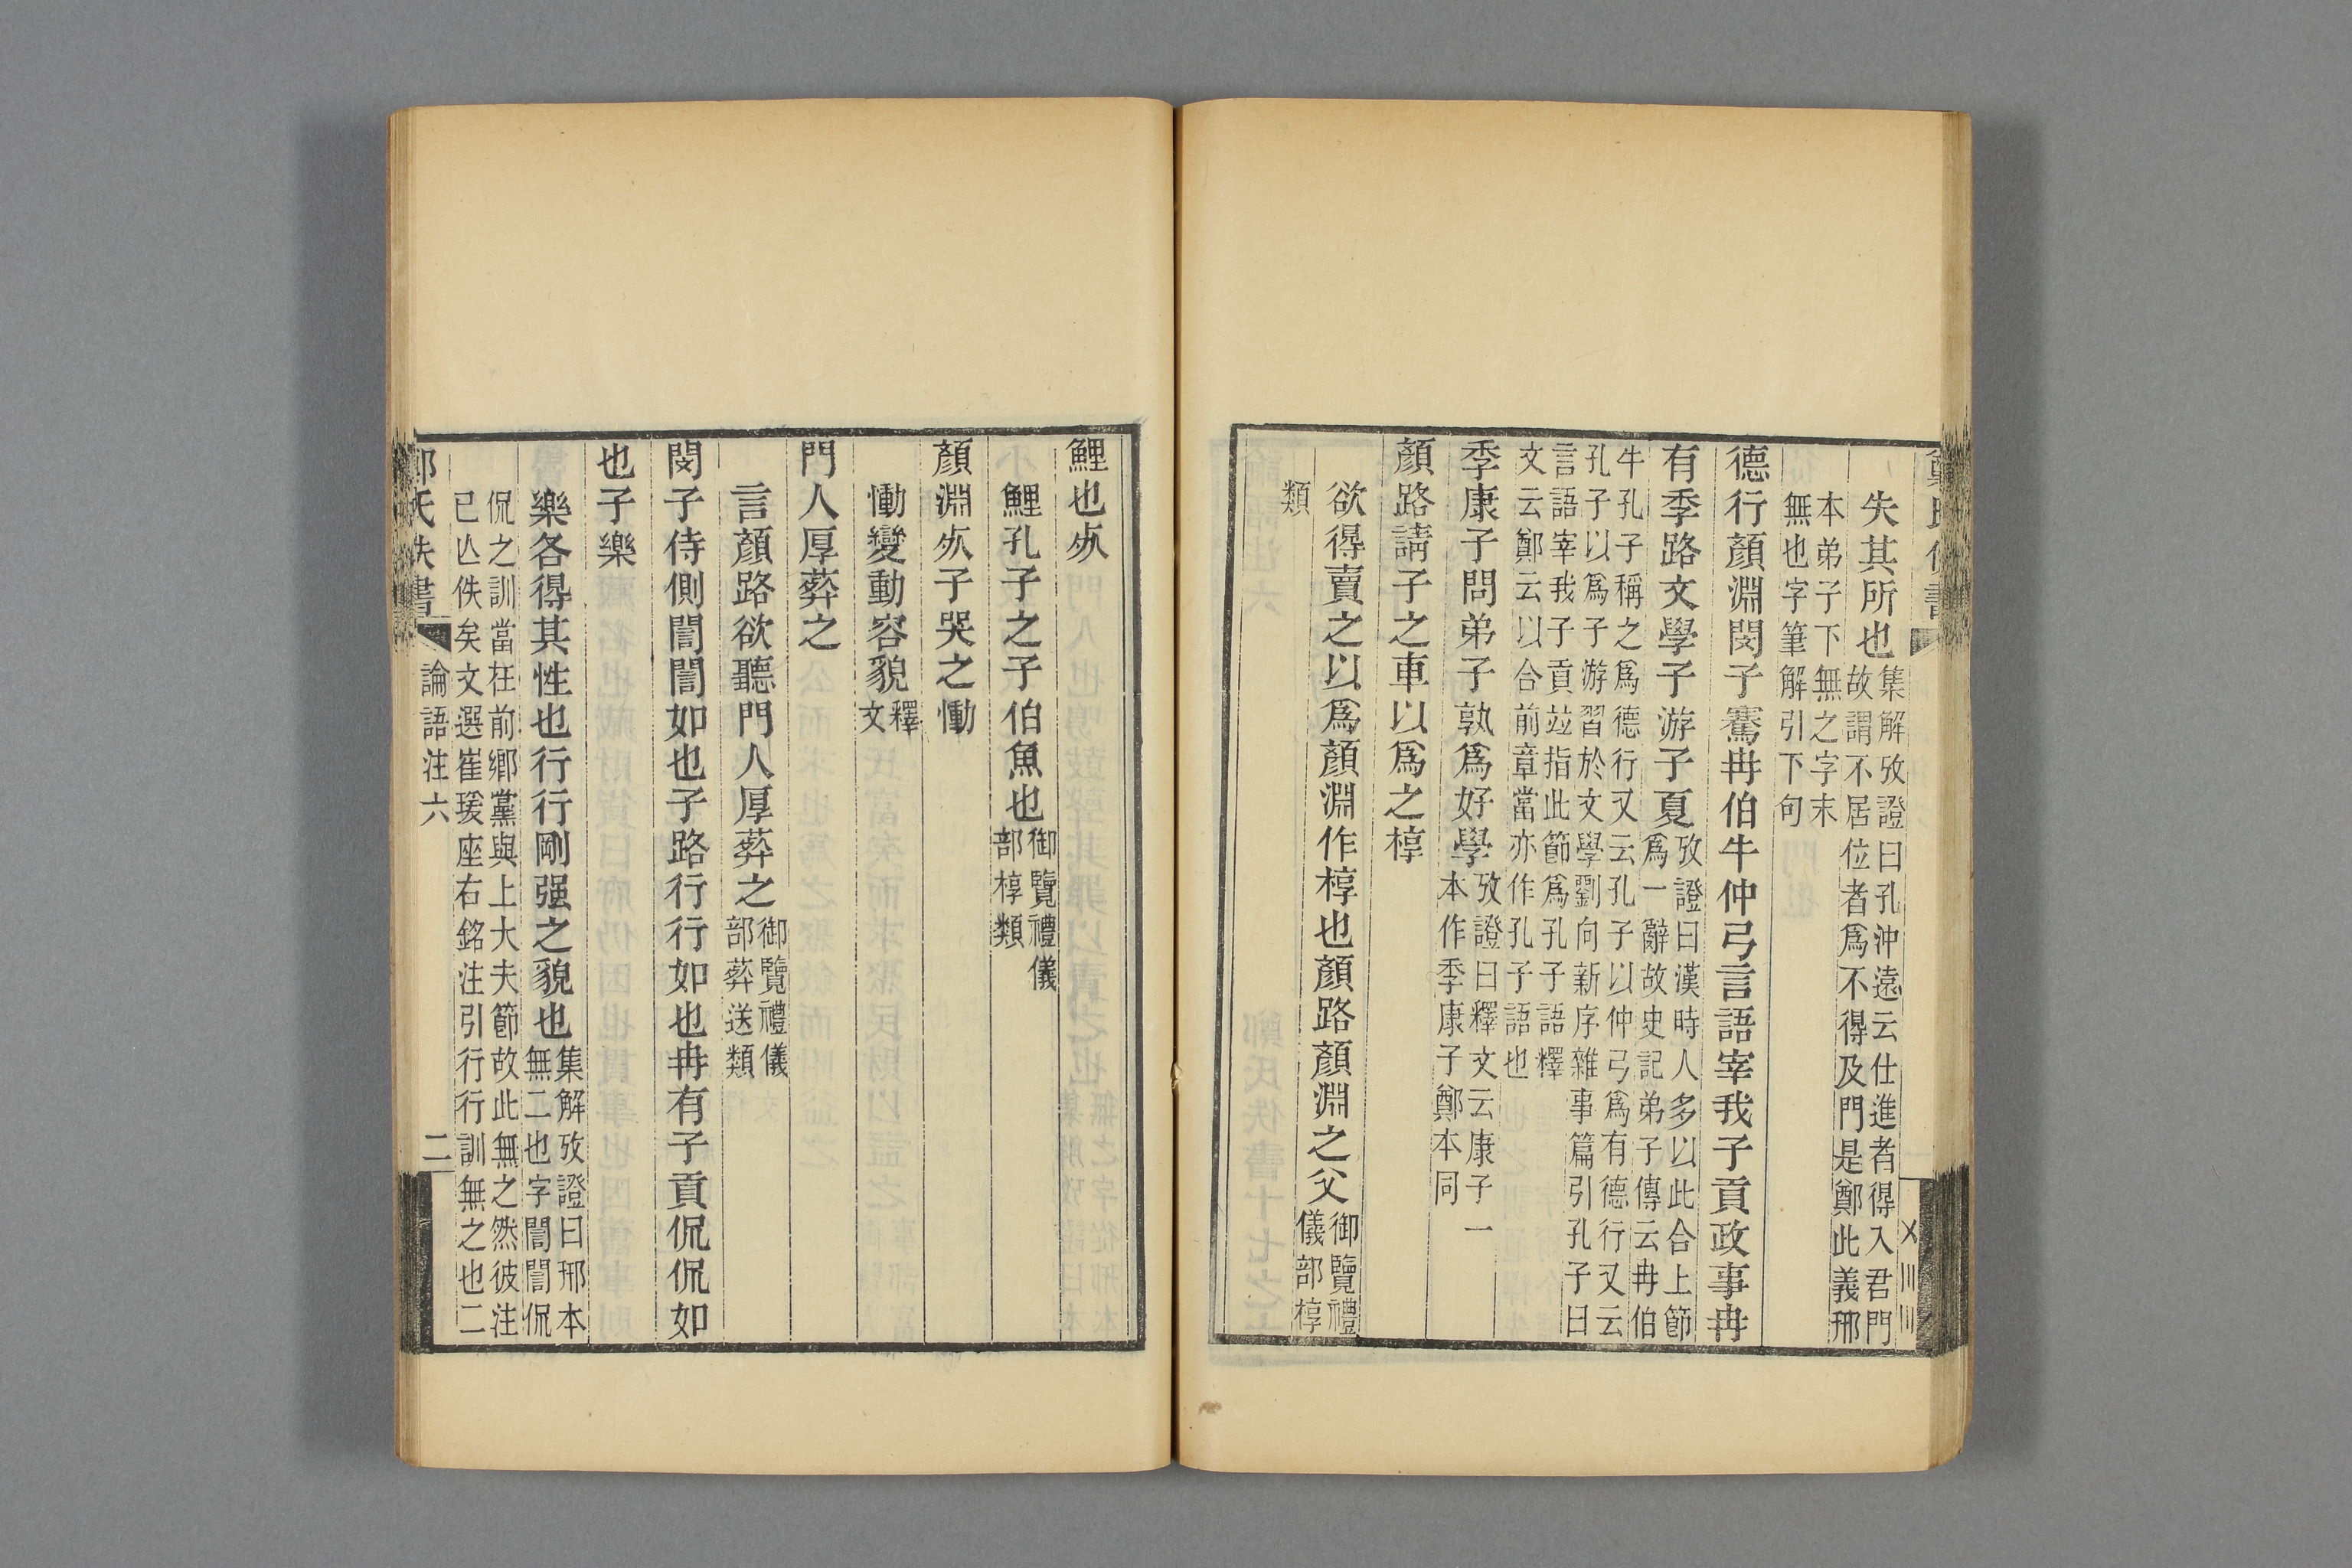 鄭氏佚書
失其所也集解攷證曰孔沖遠云仕進者得入君門
故謂不居位者爲不得及門是鄭此義邢
本弟子下無之字末
無也字筆解引下句
德行顏淵閔子騫冉伯牛仲弓言語宰我子貢政事冉
有季路文學子游子夏攷證曰漢時人多以此合上節
爲一辭故史記弟子傳云冉伯
牛孔子稱之爲德行又云孔子以仲弓爲有德行又云
孔子以爲子游習於文學劉向新序雜事篇引孔子曰
言語宰我子貢竝指此節爲孔子語釋
文云鄭云以合前章當亦作孔子語也
季康子問弟子孰爲好學攷證曰釋文云康子一
本作季康子鄭本同
顏路請子之車以爲之椁
欲得賣之以爲顏淵作椁也顏路顏淵之父御覽禮
儀部椁
類
鯉也𣦸
鯉孔子之子伯魚也御覽禮儀
部椁類
顏淵𣦸子哭之慟
慟變動容貌釋
文
門人厚葬之
言顏路欲聽門人厚葬之御覽禮儀
部葬送類
閔子侍側誾誾如也子路行行如也冉有子貢侃侃如
也子樂
樂各得其性也行行剛强之貌也集解攷證曰邢本
無二也字誾誾侃
侃之訓當在前鄉黨與上大夫節故此無之然彼注
已亾佚矣文選崔瑗座右銘注引行行訓無之也二
鄭氏佚書
論語注六
二